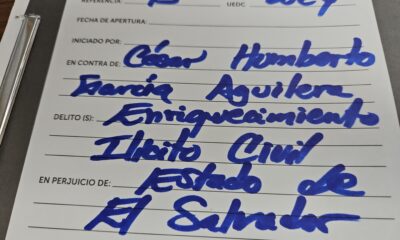 REFERENCIA: UEDC:
FECHA DE APERTURA:
INICIADO POR:
EN CONTRA DE: César Humberto
García Aguilera
DELITO (S): Enriquecimiento
Ilísito Civil
EN PERJUICIO DE: Estado de
El Salvador